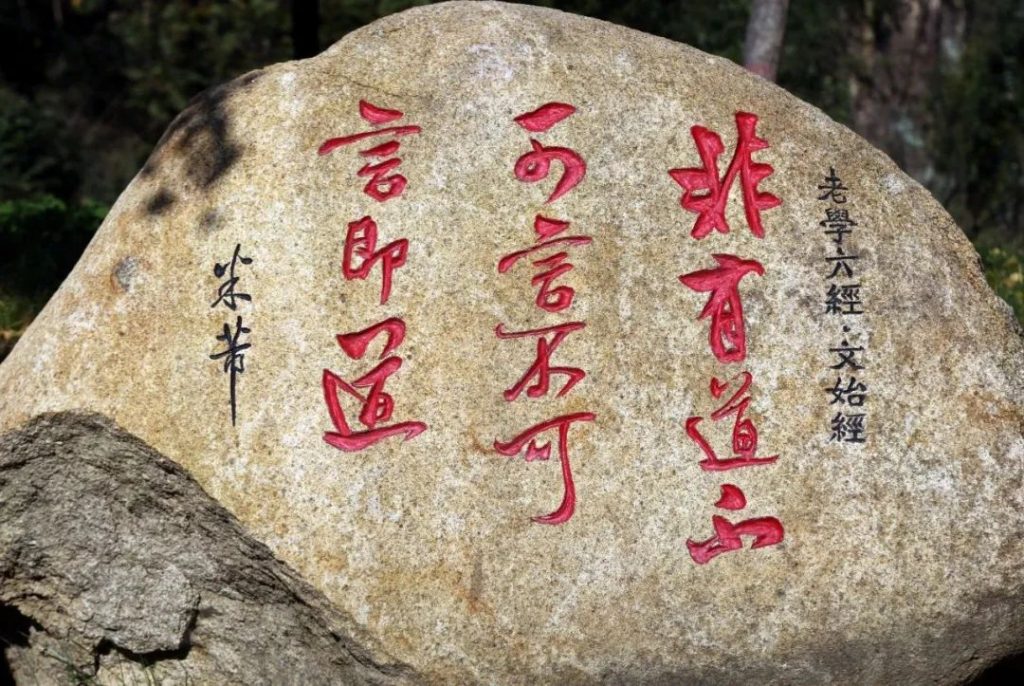 老學六經·文始經
非有道不
可言不可
言即道
米芾